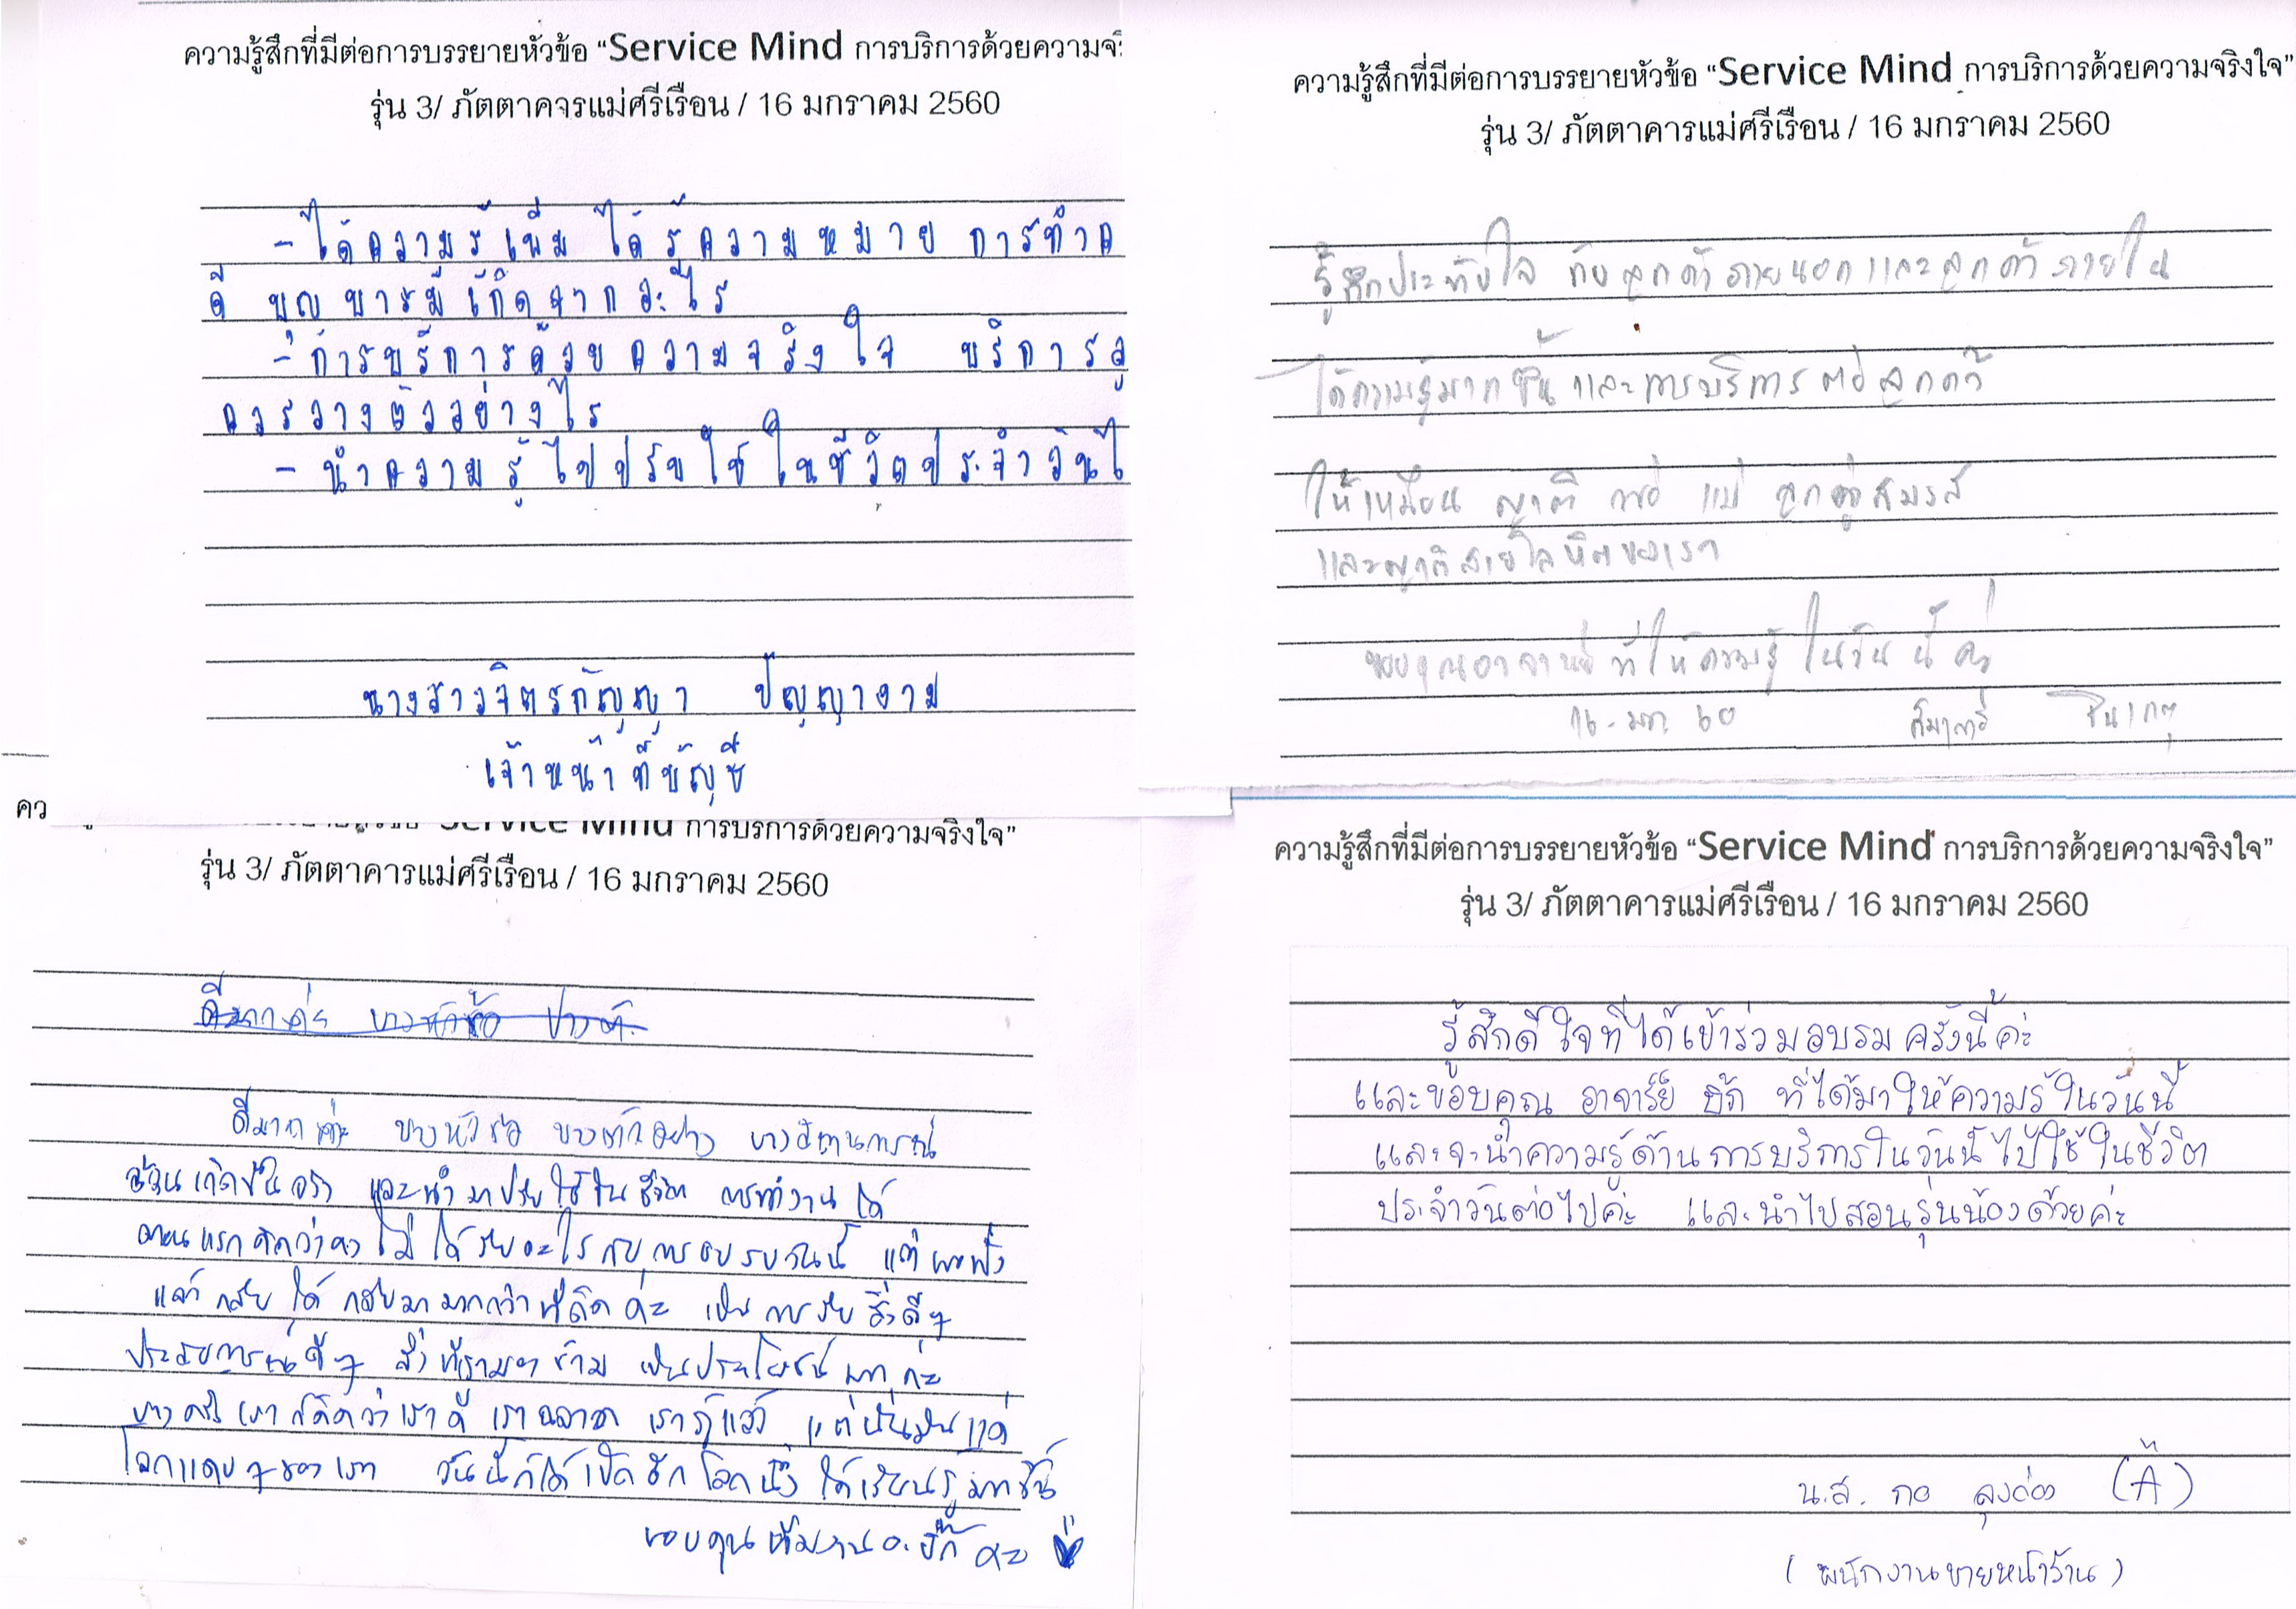 ความรู้สึกที่มีต่อการบรรยายหัวข้อ “Service Mind การบริการด้วยความจ
รุ่น 3/ ภัตตาคจรแม่ศรีเรือน / 16 มกราคม 2560
- ได้ความรู้เพิ่ม ได้รู้ความหมาย การทำค
ดี บุญบารมีเกิดจากอะไร
- การบริการด้วยความจริงใจ บริการลู
ควรวางตัวอย่างไร
- นำความรู้ไปปรับใช้ในชีวิตประจำวันไ
นางสาวจิตรกัญญา ปัญญางาม
เจ้าหน้าที่บัญชี
ความรู้สึกที่มีต่อการบรรยายหัวข้อ “Service Mind การบริการด้วยความจริงใจ”
รุ่น 3/ ภัตตาคารแม่ศรีเรือน / 16 มกราคม 2560
รู้สึกประทับใจ กับลูกค้าภายนอกและลูกค้าภายใน
ได้ความรู้มากขึ้นและการบริการต่อลูกค้า
ให้เหมือน ญาติ พ่อ แม่ ลูกคู่สมรส
และญาติสายโลหิตของเรา
ขอบคุณอาจารย์ที่ให้ความรู้ในวันนี้ค่ะ
16-มก. 60
คว
Service Mind การบริการด้วยความจริงใจ”
รุ่น 3/ ภัตตาคารแม่ศรีเรือน / 16 มกราคม 2560
ดีมากค่ะ บางหัวข้อ
ดีมากค่ะ บางหัวข้อ บางตัวอย่าง บางสถานการณ์
ล้วนเกิดขึ้นจริง และนำมาปรับใช้ในชีวิต การทำงานได้
ตอนแรกคิดว่าคงไม่ได้รับอะไรกับการอบรมวันนี้ แต่พอฟัง
แล้วกลับได้กลับมามากกว่าที่คิดค่ะ เป็นการรับสิ่งดีๆ
ประสบการณ์ดีๆ สิ่งที่เรามองข้าม เป็นประโยชน์มากค่ะ
บางครั้งเราก็คิดว่าเราดี เราฉลาด เรารู้แล้ว แต่นั่นมันแค่
โลกแคบๆของเรา วันนี้ก็ได้เปิดอีกโลกนึง ได้เรียนรู้มากขึ้น
ขอบคุณทีมงาน อ.บิ๊ก ค่ะ
ความรู้สึกที่มีต่อการบรรยายหัวข้อ “Service Mind การบริการด้วยความจริงใจ”
รุ่น 3/ ภัตตาคารแม่ศรีเรือน / 16 มกราคม 2560
รู้สึกดีใจที่ได้เข้าร่วมอบรมครั้งนี้ค่ะ
และขอบคุณ อาจาร์ย์ บิ๊ก ที่ได้มาให้ความรู้ในวันนี้
และจะนำความรู้ด้านการบริการในวันนี้ไปใช้ในชีวิต
ประจำวันต่อไปค่ะ และนำไปสอนรุ่นน้องด้วยค่ะ
น.ส. กอ ลุงต่อง
(พนักงานขายหน้าร้าน)